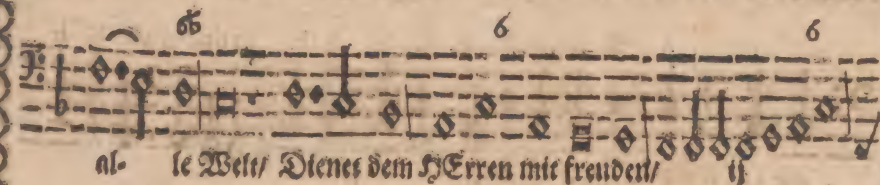 6b 6 6
al- le Welt/ Dienet dem HErren mit freuden/ ij